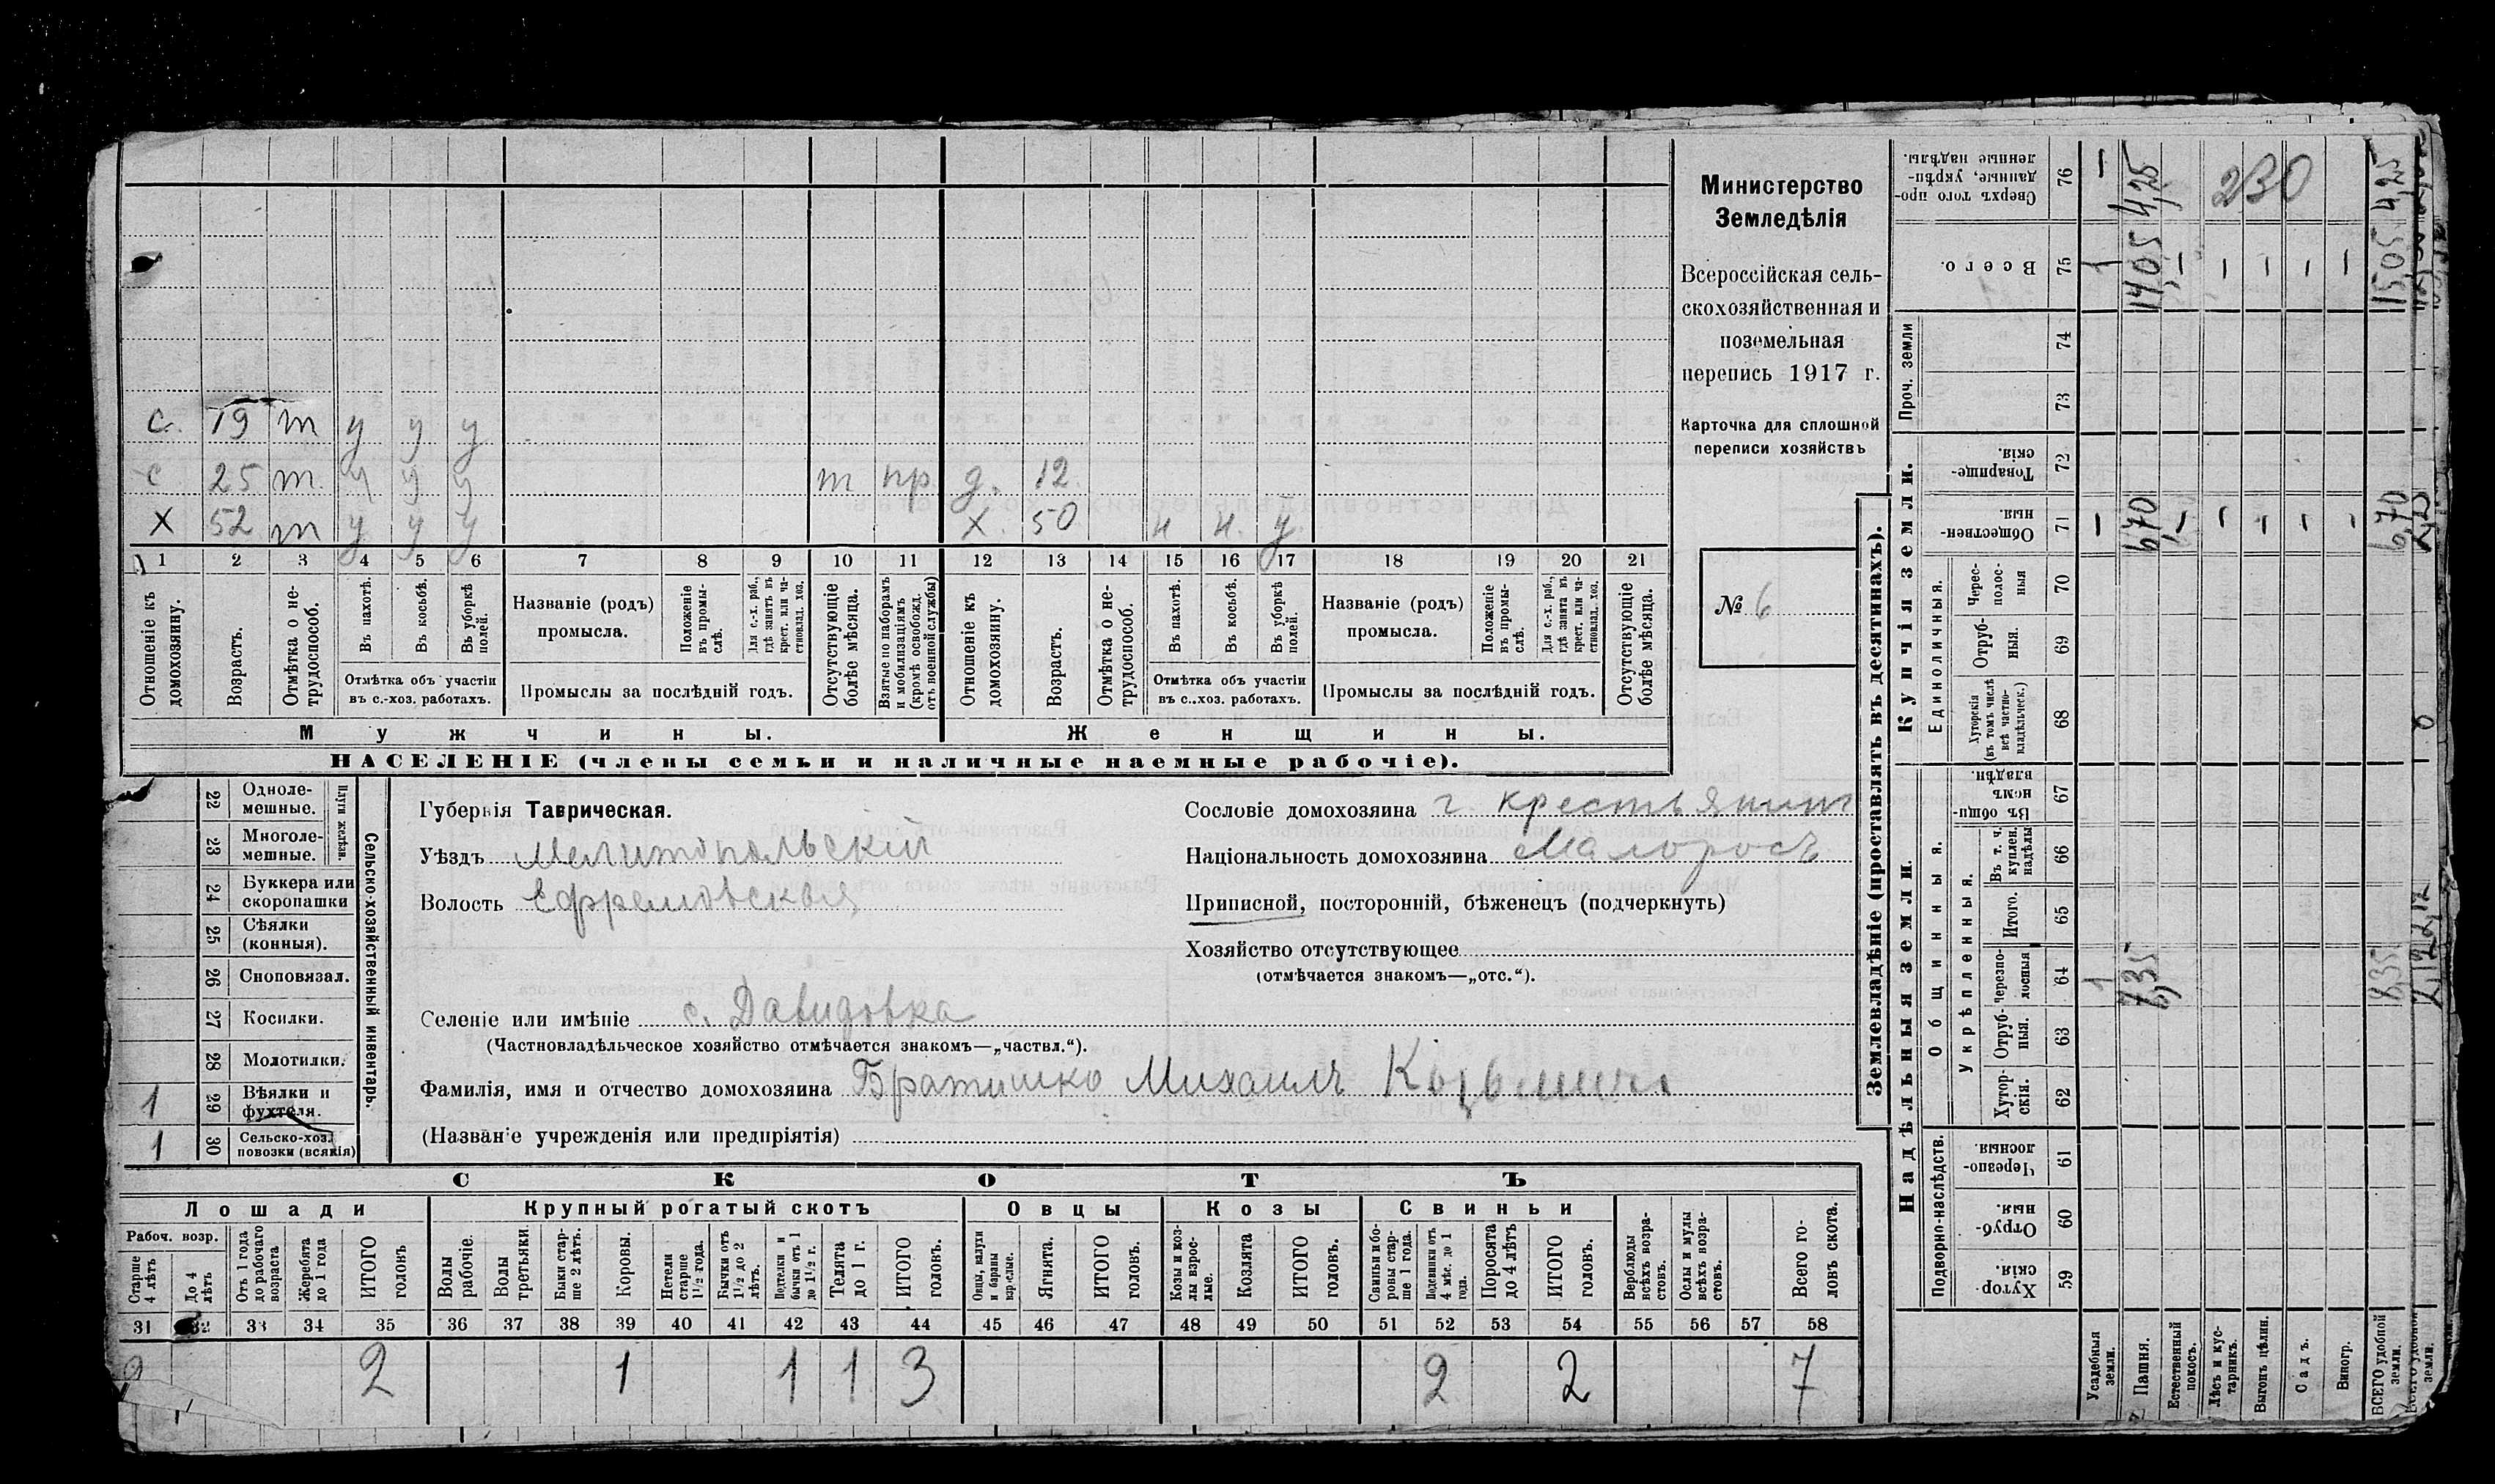 Министерство
Земледѣлія
Всероссійская сель-
скохозяйственная и
поземельная
перепись 1917 г.
Карточка для сплошной
переписи хозяйствъ
№ 6
с. 19 т у у у
с 25 т. у у у т пр. д. 12.
х 52 т у у у х. 50 н н. у
1 2 3 4 5 6 7 8 9 10 11 12 13 14 15 16 17 18 19 20 21
Отношеніе къ домохозяину.
Возрастъ.
Отмѣтка о не-трудоспособ.
Въ пахотѣ.
Въ косьбѣ.
Въ уборкѣ полей.
Отмѣтка объ участіи
въ с.-хоз. работахъ.
Названіе (родъ)
промысла.
Положеніе въ промы-слѣ.
Для с.-х. раб., гдѣ занятъ въ крест. или ча-стновлад. хоз.
Промыслы за послѣдній годъ.
Отсутствующіе болѣе мѣсяца.
Взятые по наборамъ и мобилизаціямъ (кромѣ освобожд. отъ военной службы)
Отношеніе къ домохозяину.
Возрастъ.
Отмѣтка о не-трудоспособ.
Въ пахотѣ.
Въ косьбѣ.
Въ уборкѣ полей.
Отмѣтка объ участіи
въ с.-хоз. работахъ.
Названіе (родъ)
промысла.
Положеніе въ промы-слѣ.
Для с.-х. раб., гдѣ занята въ крест. или ча-стновлад. хоз.
Промыслы за послѣдній годъ.
Отсутствующіе болѣе мѣсяца.
Мужчины. Женщины.
НАСЕЛЕНІЕ (члены семьи и наличные наемные рабочіе).
Сельско-хозяйственный инвентарь.
Плуги желѣзн.
22 Одноле-мешные.
23 Многоле-мешные.
24 Буккера или скоропашки
25 Сѣялки (конныя).
26 Сноповязал.
27 Косилки.
28 Молотилки.
1 29 Вѣялки и фухтеля.
1 30 Сельско-хоз. повозки (всякія)
Губернія Таврическая.
Уѣздъ Мелитопольскій
Волость Ефремовская
Сословіе домохозяина г. крестьянин
Національность домохозяина Малоросъ
Приписной, посторонній, бѣженецъ (подчеркнуть)
Хозяйство отсутствующее
(отмѣчается знакомъ—„отс.“).
Селеніе или имѣніе с. Давидовка
(Частновладѣльческое хозяйство отмѣчается знакомъ—„частвл.“).
Фамилія, имя и отчество домохозяина Братишко Михаилъ
(Названіе учрежденія или предпріятія)
СКОТЪ
Лошади Крупный рогатый скотъ Овцы Козы Свиньи
Рабоч. возр.
Старше 4 лѣтъ
До 4 лѣтъ
Отъ 1 года до рабочаго возраста
Жеребята до 1 года
ИТОГО головъ
Волы рабочіе.
Волы третьяки.
Быки стар-ше 2 лѣтъ.
Коровы.
Нетели старше 1½ года.
Бычки отъ 1½ до 2 лѣтъ.
Подтелки и бычки отъ 1 до 1½ г.
Телята до 1 г.
ИТОГО головъ.
Овцы, валухи и бараны взрослые.
Ягнята.
ИТОГО головъ.
Козы и коз-лы взрос-лые.
Козлята
ИТОГО головъ.
Свиньи и бо-ровы стар-ше 1 года.
Подсвинки отъ 4 мѣс. до 1 года.
Поросята до 4 лѣтъ
ИТОГО головъ.
Верблюды всѣхъ возра-стовъ.
Ослы и мулы всѣхъ возра-стовъ.
Всего го-ловъ скота.
31 32 33 34 35 36 37 38 39 40 41 42 43 44 45 46 47 48 49 50 51 52 53 54 55 56 57 58
2 2 1 1 1 3 2 2 7
Землевладѣніе (проставлять въ десятинахъ).
Надѣльныя земли. Купчія земли. Проч. земли
Подворно-наслѣдств. Общинныя. Укрѣпленныя. Единоличныя.
59 Хутор-скія.
60 Отруб-ныя.
61 Черезпо-лосныя
62 Хутор-скія.
63 Отруб-ныя.
64 Черезпо-лосныя
65 Итого.
66 Въ т. ч. куплен. надѣлы
67 Въ общин-номъ владѣн.
68 Хуторскія (въ томъ числѣ всѣ частно-владѣльческ.)
69 Отруб-ныя.
70 Черес-полос-ныя
71 Обществен-ныя.
72 Товарище-скія.
73
74
75 Всего.
76 Сверхъ того про-данные, укрѣп-ленные надѣлы.
Усадебныя земли.
Пашня.
Естественный покосъ.
Лѣсъ и кус-тарникъ.
Выгонъ цѣлин.
Садъ.
Виногр.
ВСЕГО удобной земли.
1 7,35 8,35
6,70 6,70
1 14,05 15,05
4,25 230 4,25